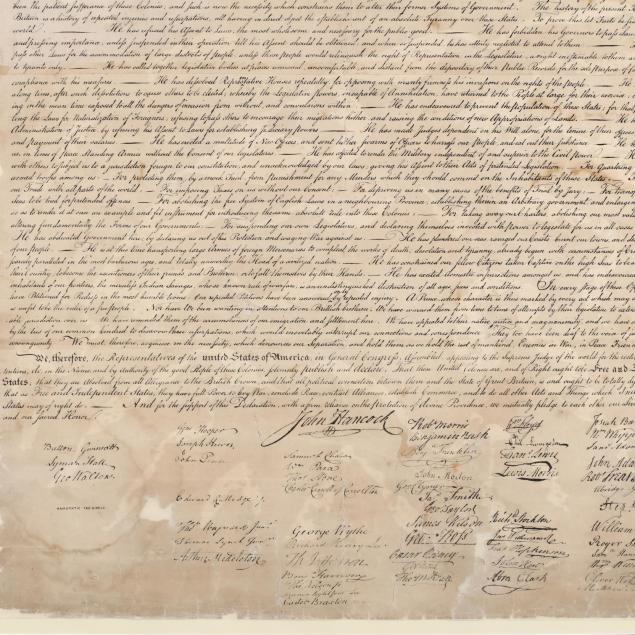 been the patient sufferance of these Colonies; and such is now the necessity which constrains them to alter their former Systems of Government. — The history of the present
Britain is a history of repeated injuries and usurpations, all having in direct object the establishment of an absolute Tyranny over these States. To prove this, let Facts be
world. — He has refused his Assent to Laws, the most wholesome and necessary for the public good. — He has forbidden his Governors to pass Laws
and pressing importance, unless suspended in their operation till his Assent should be obtained; and when so suspended, he has utterly neglected to attend to them. —
pass other Laws for the accommodation of large districts of people, unless those people would relinquish the right of Representation in the Legislature, a right inestimable to them
to tyrants only. — He has called together legislative bodies at places unusual, uncomfortable, and distant from the depository of their Public Records, for the sole purpose of
compliance with his measures. — He has dissolved Representative Houses repeatedly, for opposing with manly firmness his invasions on the rights of the people. — He has
long time, after such dissolutions, to cause others to be elected; whereby the Legislative powers, incapable of Annihilation, have returned to the People at large for their exercise;
ing in the mean time exposed to all the dangers of invasion from without, and convulsions within. — He has endeavoured to prevent the population of these States; for that
ing the Laws for Naturalization of Foreigners; refusing to pass others to encourage their migrations hither, and raising the conditions of new Appropriations of Lands. — He
Administration of Justice, by refusing his Assent to Laws for establishing Judiciary powers. — He has made Judges dependent on his Will alone, for the tenure of their offices
and payment of their salaries. — He has erected a multitude of New Offices, and sent hither swarms of Officers to harrass our People, and eat out their substance. — He
us, in times of peace, Standing Armies without the Consent of our legislatures. — He has affected to render the Military independent of and superior to the Civil power.
with others to subject us to a jurisdiction foreign to our constitution, and unacknowledged by our laws; giving his Assent to their Acts of pretended Legislation: — For Quartering
armed troops among us: — For protecting them, by a mock Trial, from punishment for any Murders which they should commit on the Inhabitants of these States: —
our Trade with all parts of the world: — For imposing Taxes on us without our Consent: — For depriving us in many cases, of the benefits of Trial by Jury: —
Seas to be tried for pretended offences — For abolishing the free System of English Laws in a neighbouring Province, establishing therein an Arbitrary government, and enlarging
so as to render it at once an example and fit instrument for introducing the same absolute rule into these Colonies: — For taking away our Charters, abolishing our most
altering fundamentally the Forms of our Governments: — For suspending our own Legislatures, and declaring themselves invested with power to legislate for us in all cases
He has abdicated Government here, by declaring us out of his Protection and waging War against us. — He has plundered our seas, ravaged our Coasts, burnt our towns, and
of our people. — He is at this time transporting large Armies of foreign Mercenaries to compleat the works of death, desolation and tyranny, already begun with circumstances of
scarcely paralleled in the most barbarous ages, and totally unworthy the Head of a civilized nation. — He has constrained our fellow Citizens taken Captive on the high Seas to
their Country, to become the executioners of their friends and Brethren, or to fall themselves by their Hands. — He has excited domestic insurrections amongst us, and has endeavoured
inhabitants of our frontiers, the merciless Indian Savages, whose known rule of warfare, is an undistinguished destruction of all ages, sexes and conditions. In every stage of these
have Petitioned for Redress in the most humble terms: Our repeated Petitions have been answered only by repeated injury. A Prince, whose character is thus marked by every act which may
is unfit to be the ruler of a free people. Nor have We been wanting in attentions to our Brittish brethren. We have warned them from time to time of attempts by their legislature to
able jurisdiction over us. We have reminded them of the circumstances of our emigration and settlement here. We have appealed to their native justice and magnanimity, and we have
by the ties of our common kindred to disavow these usurpations, which, would inevitably interrupt our connections and correspondence. They too have been deaf to the voice of
consanguinity. We must, therefore, acquiesce in the necessity, which denounces our Separation, and hold them, as we hold the rest of mankind, Enemies in War, in Peace Friends
We, therefore, the Representatives of the united States of America, in General Congress, Assembled, appealing to the Supreme Judge of the world for the
tentions, do, in the Name, and by Authority of the good People of these Colonies, solemnly publish and declare, That these United Colonies are, and of Right ought to be Free and
States; that they are Absolved from all Allegiance to the British Crown, and that all political connection between them and the State of Great Britain, is and ought to be totally
that as Free and Independent States, they have full Power to levy War, conclude Peace, contract Alliances, establish Commerce, and to do all other Acts and Things which
States may of right do. — And for the support of this Declaration, with a firm reliance on the protection of divine Providence, we mutually pledge to each other our
and our sacred Honor.
John Hancock
Button Gwinnett
Lyman Hall
Geo Walton.
Wm Hooper
Joseph Hewes,
John Penn
Edward Rutledge
Thos Heyward Junr
Thomas Lynch Junr
Arthur Middleton
Samuel Chase
Wm Paca
Thos Stone
Charles Carroll of Carrollton
George Wythe
Richard Henry Lee
Th Jefferson
Benj Harrison
Thos Nelson jr
Francis Lightfoot Lee
Carter Braxton
Robt Morris
Benjamin Rush
Benj Franklin
John Morton
Geo Clymer
Jas Smith
Geo Taylor
James Wilson
Geo Ross
Caesar Rodney
Geo Read
Tho M:Kean
Wm Floyd
Phil. Livingston
Frans Lewis
Lewis Morris
Richd Stockton
Jno Witherspoon
Fras Hopkinson
John Hart
Abra Clark
Josiah Bar
Wm Whip
John Adam
Step
William
Roger She
Oliver Wol